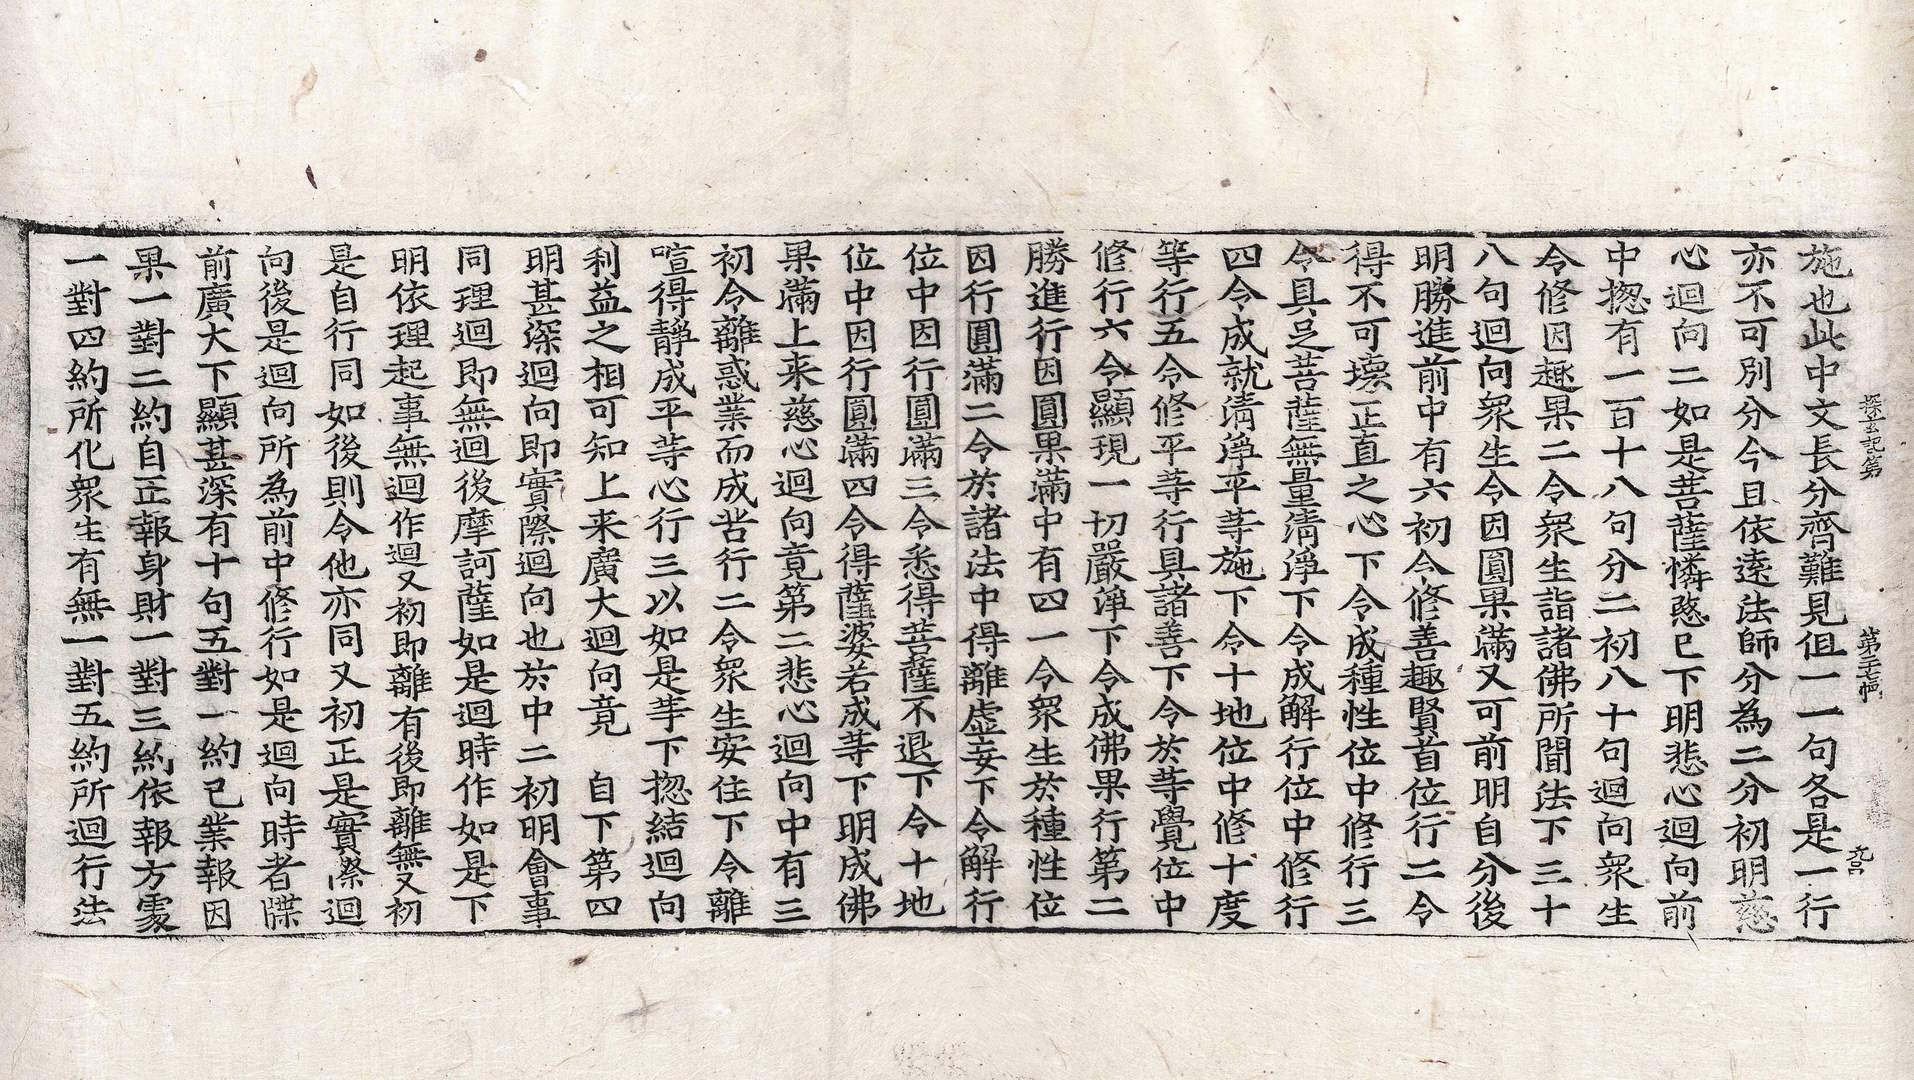 探玄記第 第二十七幅
施也此中文長分齊難見但一一句各是一行
亦不可別分今且依遠法師分為二分初明慈
心迴向二如是菩薩憐愍已下明悲心迴向前
中揔有一百十八句分二初八十句迴向衆生
令修因趣果二令衆生詣諸佛所聞法下三十
八句迴向衆生令因圓果滿又可前明自分後
明勝進前中有六初令修善趣賢首位行二令
得不可壞正直之心下令成種性位中修行三
令具足菩薩無量清淨下令成解行位中修行
四令成就清淨平等施下令十地位中修十度
等行五令修平等行具諸善下令於等覺位中
修行六令顯現一切嚴淨下令成佛果行第二
勝進行因圓果滿中有四一令衆生於種性位
因行圓滿二令於諸法中得離虛妄下令解行
位中因行圓滿三令悉得菩薩不退下令十地
位中因行圓滿四令得薩婆若成等下明成佛
果滿上来慈心迴向竟第二悲心迴向中有三
初令離惑業而成苦行二令衆生安住下令離
喧得靜成平等心行三以如是等下揔結迴向
利益之相可知上来廣大迴向竟 自下第四
明甚深迴向即實際迴向也於中二初明會事
同理迴即無迴後摩訶薩如是迴時作如是下
明依理起事無迴作迴又初即離有後即離無又初
是自行同如後則令他亦同又初正是實際迴
向後是迴向所為前中修行如是迴向時者牒
前廣大下顯甚深有十句五對一約已業報因
果一對二約自正報身財一對三約依報方𠁅
一對四約所化衆生有無一對五約所迴行法